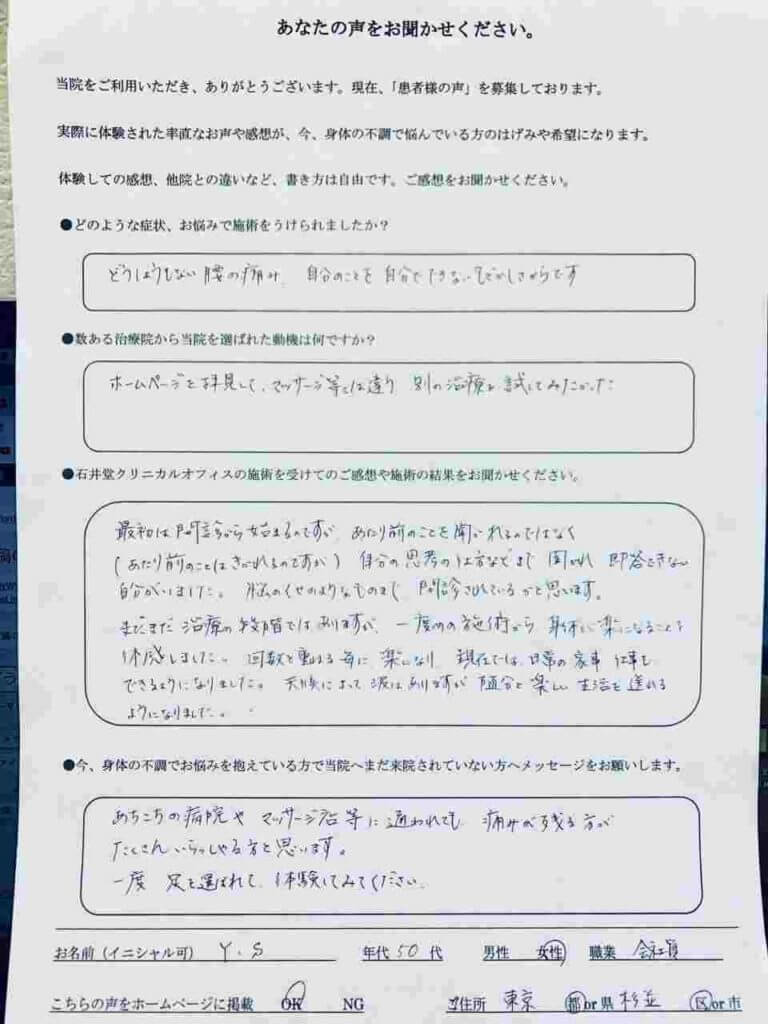 あなたの声をお聞かせください。
当院をご利用いただき、ありがとうございます。現在、「患者様の声」を募集しております。
実際に体験された率直なお声や感想が、今、身体の不調で悩んでいる方のはげみや希望になります。
体験しての感想、他院との違いなど、書き方は自由です。ご感想をお聞かせください。
●どのような症状、お悩みで施術をうけられましたか？
どうしようもない腰の痛み、自分のことを自分でできないもどかしさからです
●数ある治療院から当院を選ばれた動機は何ですか？
ホームページを拝見して、マッサージ等とは違う 別の治療を試してみたかった
●石井堂クリニカルオフィスの施術を受けてのご感想や施術の結果をお聞かせください。
最初は問診から始まるのですが、あたり前のことを聞かれるのではなく
(あたり前のことはきかれるのですが) 自分の思考の仕方などまで 聞かれ 即答できない
自分がいました。脳のくせのようなものまで 問診されているかと思います。
まだまだ治療の段階ではありますが、一度めの施術から 身体が楽になることを
体感しました。回数を重ねる毎に 楽になり 現在では、日常の家事 仕事も
できるようになりました。天候によって波はありますが 随分と楽しい生活を送れる
ようになりました。
●今、身体の不調でお悩みを抱えている方で当院へまだ来院されていない方へメッセージをお願いします。
あちこちの病院や マッサージ治等に通われても 痛みが残る方が
たくさんいらっしゃる方と思います。
一度 足を運ばれて、体験してみてください。
お名前（イニシャル可） Y.S 年代 50 代 男性 女性 職業 会社員
こちらの声をホームページに掲載 OK NG ご住所 東京 都or県 杉並 区or市